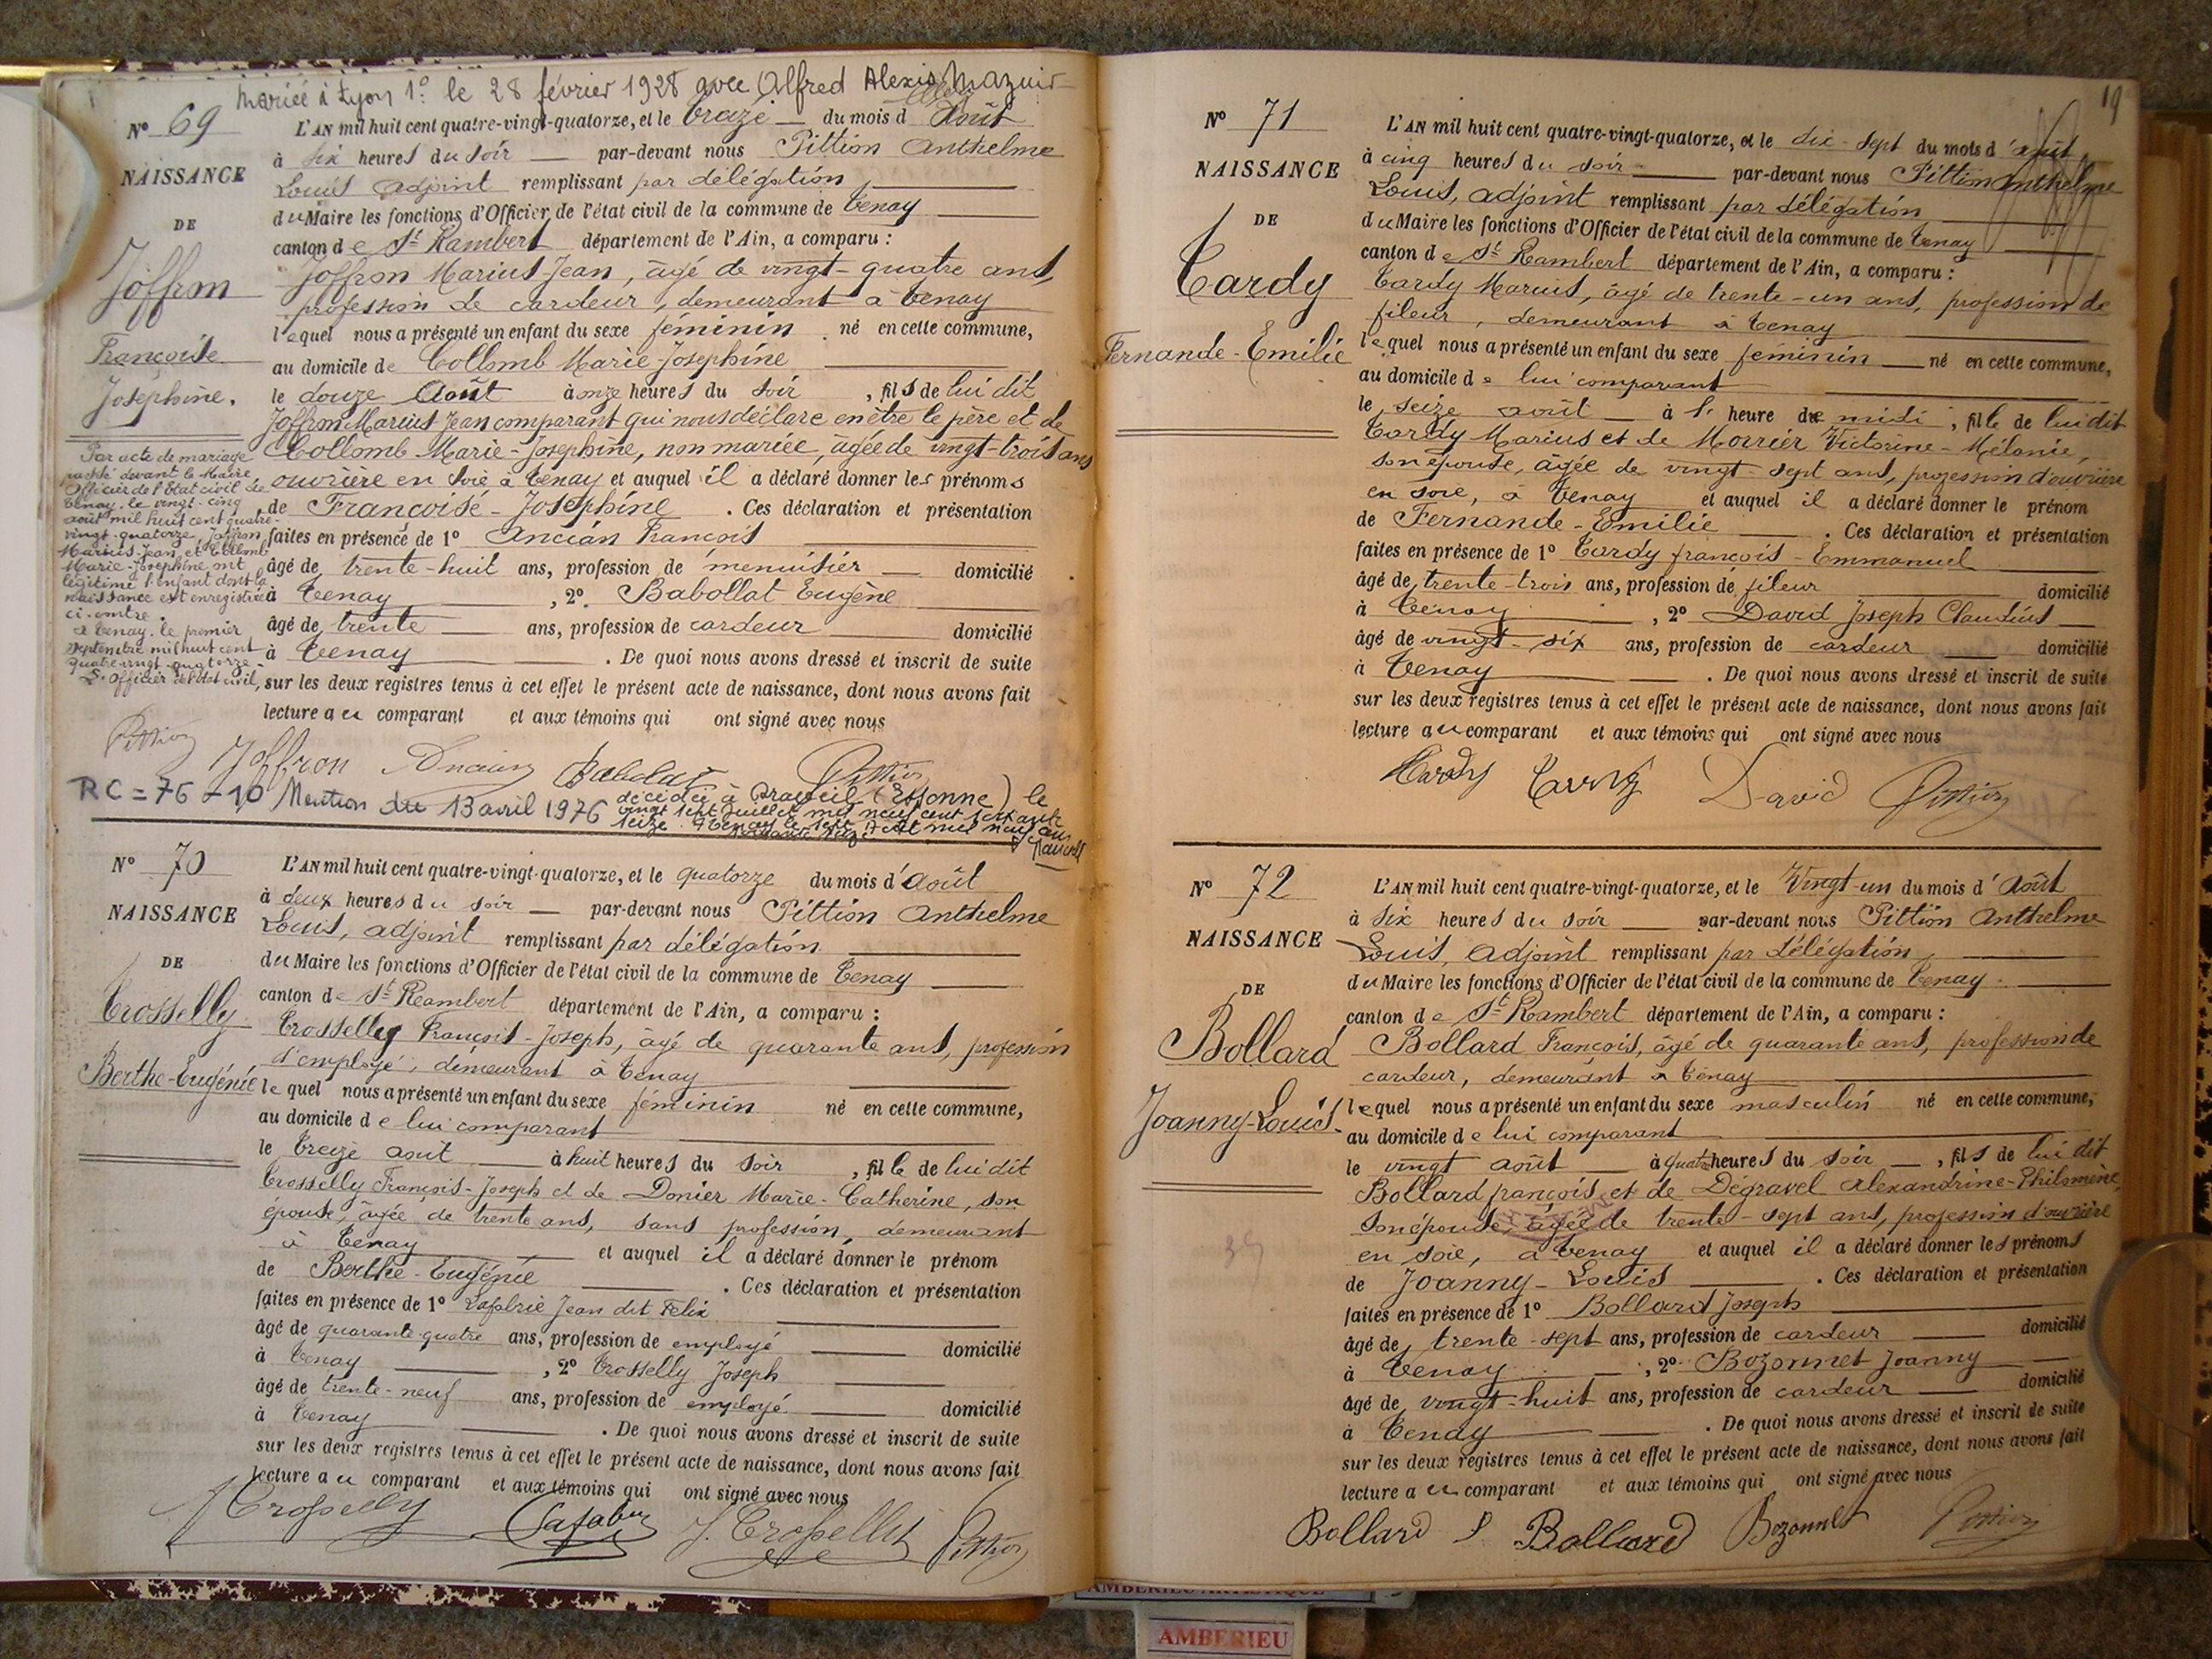 mariée à Lyon 1º le 28 février 1928 avec Alfred Alexis Mazuir
Nº 69
NAISSANCE
DE
Joffron
Françoise
Joséphine.
L'AN mil huit cent quatre-vingt-quatorze, et le treize du mois d Août
à six heures du soir par-devant nous Pittion Anthelme
Louis adjoint remplissant par délégation
du Maire les fonctions d'Officier de l'état civil de la commune de Tenay
canton de St Rambert département de l'Ain, a comparu :
Joffron Marius Jean, âgé de vingt-quatre ans,
profession de cardeur, demeurant à Tenay
lequel nous a présenté un enfant du sexe féminin né en cette commune,
au domicile de Collomb Marie-Joséphine
le douze Août à onze heures du soir, fils de lui dit
Joffron Marius Jean comparant qui nous déclare en être le père et de
Collomb Marie-Joséphine, non mariée, âgée de vingt-trois ans
ouvrière en soie à Tenay et auquel il a déclaré donner les prénoms
de Françoise-Joséphine. Ces déclaration et présentation
faites en présence de 1º Ancian François
âgé de trente-huit ans, profession de menuisier domicilié
à Tenay, 2º Babollat Eugène
âgé de trente ans, profession de cardeur domicilié
à Tenay. De quoi nous avons dressé et inscrit de suite
sur les deux registres tenus à cet effet le présent acte de naissance, dont nous avons fait
lecture au comparant et aux témoins qui ont signé avec nous
Par acte de mariage
passé devant le Maire
Officier de l'Etat civil de
Tenay, le vingt-cinq
août mil huit cent quatre-
vingt-quatorze, Joffron
Marius Jean et Collomb
Marie-Joséphine ont
légitimé l'enfant dont la
naissance est enregistrée
ci-contre.
à Tenay, le premier
septembre mil huit cent
quatre-vingt-quatorze
L'Officier de l'Etat civil,
Pittion
Joffron Ancian Babolat Pittion
RC = 76-10 Mention du 13 avril 1976
décédée à Draveil (Essonne) le
vingt sept juillet mil neuf cent soixante
seize. Tenay le sept Août mil neuf cent
Nº 70
NAISSANCE
DE
Trosselly
Berthe-Eugénie
L'AN mil huit cent quatre-vingt-quatorze, et le quatorze du mois d'août
à deux heures du soir par-devant nous Pittion Anthelme
Louis, adjoint remplissant par délégation
du Maire les fonctions d'Officier de l'état civil de la commune de Tenay
canton de St Rambert département de l'Ain, a comparu :
Trosselly François-Joseph, âgé de quarante ans, profession
d'employé, demeurant à Tenay
lequel nous a présenté un enfant du sexe féminin né en cette commune,
au domicile de lui comparant
le treize août à huit heures du soir, fille de lui dit
Trosselly François-Joseph et de Donier Marie-Catherine, son
épouse, âgée de trente ans, sans profession, demeurant
à Tenay et auquel il a déclaré donner le prénom
de Berthe-Eugénie. Ces déclaration et présentation
faites en présence de 1º Lafabrie Jean dit Felix
âgé de quarante-quatre ans, profession de employé domicilié
à Tenay, 2º Trosselly Joseph
âgé de trente-neuf ans, profession de employé domicilié
à Tenay. De quoi nous avons dressé et inscrit de suite
sur les deux registres tenus à cet effet le présent acte de naissance, dont nous avons fait
lecture au comparant et aux témoins qui ont signé avec nous
Trosselly J. Trosselly Pittion
19
Nº 71
NAISSANCE
DE
Tardy
Fernande-Emilie
L'AN mil huit cent quatre-vingt-quatorze, et le dix-sept du mois d'août
à cinq heures du soir par-devant nous Pittion Anthelme
Louis, adjoint remplissant par délégation
du Maire les fonctions d'Officier de l'état civil de la commune de Tenay
canton de St Rambert département de l'Ain, a comparu :
Tardy Marius, âgé de trente-un ans, profession de
fileur, demeurant à Tenay
lequel nous a présenté un enfant du sexe féminin né en cette commune,
au domicile de lui comparant
le seize août à l' heure de midi, fille de lui dit
Tardy Marius et de Morrier Victorine-Mélanie,
son épouse, âgée de vingt-sept ans, profession d'ouvrière
en soie, à Tenay et auquel il a déclaré donner le prénom
de Fernande-Emilie. Ces déclaration et présentation
faites en présence de 1º Tardy françois-Emmanuel
âgé de trente-trois ans, profession de fileur domicilié
à Tenay, 2º David Joseph Claudius
âgé de vingt-six ans, profession de cardeur domicilié
à Tenay. De quoi nous avons dressé et inscrit de suite
sur les deux registres tenus à cet effet le présent acte de naissance, dont nous avons fait
lecture au comparant et aux témoins qui ont signé avec nous
Tardy Tardy David Pittion
Nº 72
NAISSANCE
DE
Bollard
Joanny-Louis.
L'AN mil huit cent quatre-vingt-quatorze, et le Vingt-un du mois d'Août
à six heures du soir par-devant nous Pittion Anthelme
Louis, adjoint remplissant par délégation
du Maire les fonctions d'Officier de l'état civil de la commune de Tenay
canton de St Rambert département de l'Ain, a comparu :
Bollard François, âgé de quarante ans, profession de
cardeur, demeurant à Tenay
lequel nous a présenté un enfant du sexe masculin né en cette commune,
au domicile de lui comparant
le vingt août à quatre heures du soir, fils de lui dit
Bollard françois et de Dégravel Alexandrine-Philomène,
son épouse, âgée de trente-sept ans, profession d'ouvrière
en soie, à Tenay et auquel il a déclaré donner les prénoms
de Joanny-Louis. Ces déclaration et présentation
faites en présence de 1º Bollard Joseph
âgé de trente-sept ans, profession de cardeur domicilié
à Tenay, 2º Bozonnet Joanny
âgé de vingt-huit ans, profession de cardeur domicilié
à Tenay. De quoi nous avons dressé et inscrit de suite
sur les deux registres tenus à cet effet le présent acte de naissance, dont nous avons fait
lecture au comparant et aux témoins qui ont signé avec nous
Bollard J Bollard Bozonnet Pittion
AMBERIEU ARTISTIQUE
AMBERIEU